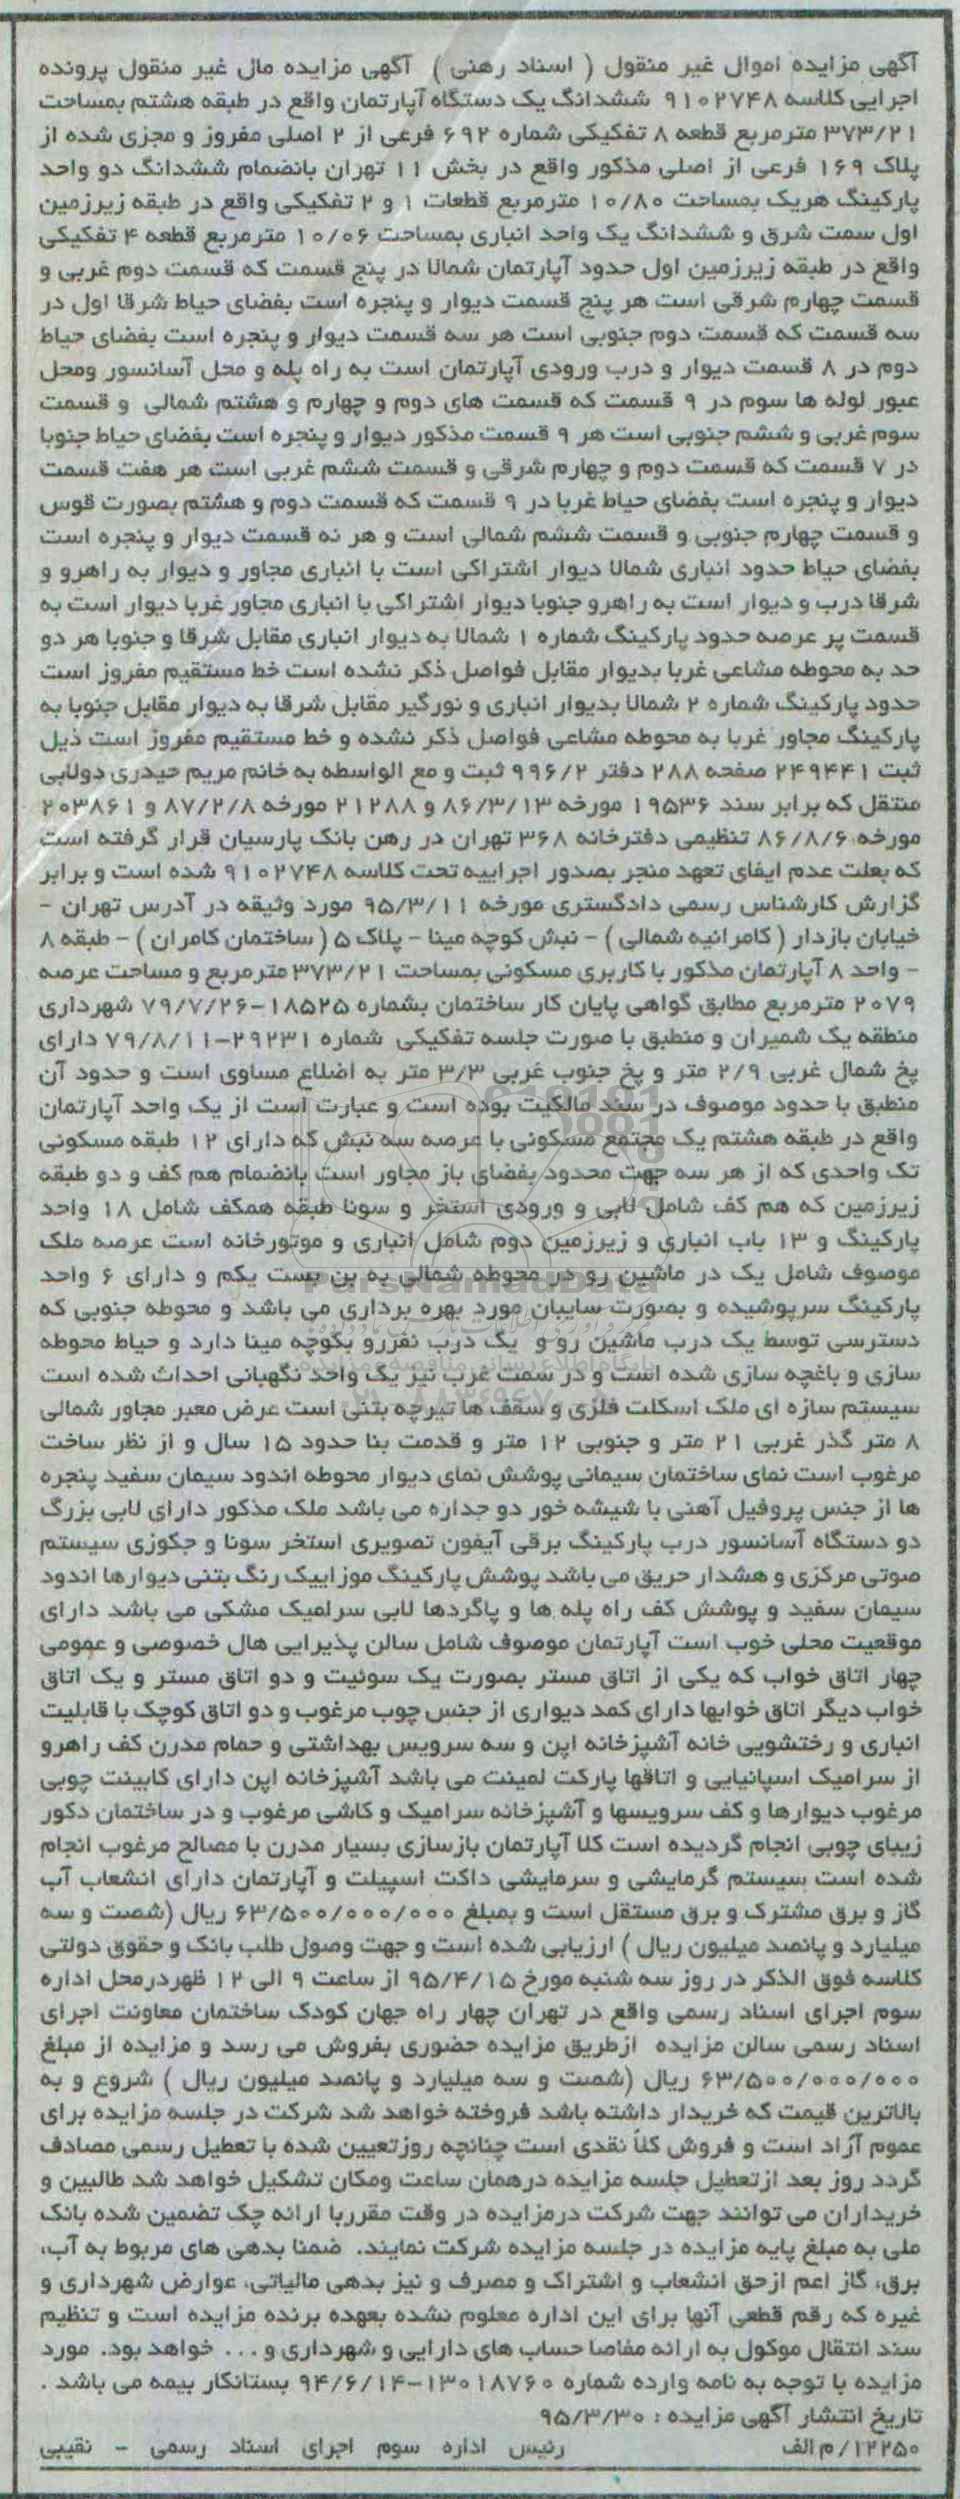 آگهی مزایده اموال غیر منقول ( اسناد رهنی ) آگهی مزایده مال غیر منقول پرونده
اجرایی کلاسه ۹۱۰۲۷۴۸ ششدانگ یک دستگاه آپارتمان واقع در طبقه هشتم بمساحت
۳۷۳/۲۱ مترمربع قطعه ۸ تفکیکی شماره ۶۹۲ فرعی از ۲ اصلی مفروز و مجزی شده از
پلاک ۱۶۹ فرعی از اصلی مذکور واقع در بخش ۱۱ تهران بانضمام ششدانگ دو واحد
پارکینگ هریک بمساحت ۱۰/۸۰ مترمربع قطعات ۱ و ۲ تفکیکی واقع در طبقه زیرزمین
اول سمت شرق و ششدانگ یک واحد انباری بمساحت ۱۰/۰۶ مترمربع قطعه ۴ تفکیکی
واقع در طبقه زیرزمین اول حدود آپارتمان شمالا در پنج قسمت که قسمت دوم غربی و
قسمت چهارم شرقی است هر پنج قسمت دیوار و پنجره است بفضای حیاط شرقا اول در
سه قسمت که قسمت دوم جنوبی است هر سه قسمت دیوار و پنجره است بفضای حیاط
دوم در ۸ قسمت دیوار و درب ورودی آپارتمان است به راه پله و محل آسانسور ومحل
عبور لوله ها سوم در ۹ قسمت که قسمت های دوم و چهارم و هشتم شمالی و قسمت
سوم غربی و ششم جنوبی است هر ۹ قسمت مذکور دیوار و پنجره است بفضای حیاط جنوبا
در ۷ قسمت که قسمت دوم و چهارم شرقی و قسمت ششم غربی است هر هفت قسمت
دیوار و پنجره است بفضای حیاط غربا در ۹ قسمت که قسمت دوم و هشتم بصورت قوس
و قسمت چهارم جنوبی و قسمت ششم شمالی است و هر نه قسمت دیوار و پنجره است
بفضای حیاط حدود انباری شمالا دیوار اشتراکی است با انباری مجاور و دیوار به راهرو و
شرقا درب و دیوار است به راهرو جنوبا دیوار اشتراکی با انباری مجاور غربا دیوار است به
قسمت پر عرصه حدود پارکینگ شماره ۱ شمالا به دیوار انباری مقابل شرقا و جنوبا هر دو
حد به محوطه مشاعی غربا بدیوار مقابل فواصل ذکر نشده است خط مستقیم مفروز است
حدود پارکینگ شماره ۲ شمالا بدیوار انباری و نورگیر مقابل شرقا به دیوار مقابل جنوبا به
پارکینگ مجاور غربا به محوطه مشاعی فواصل ذکر نشده و خط مستقیم مفروز است ذیل
ثبت ۲۴۹۴۴۱ صفحه ۲۸۸ دفتر ۹۹۶/۲ ثبت و مع الواسطه به خانم مریم حیدری دولابی
منتقل که برابر سند ۱۹۵۳۶ مورخه ۸۶/۳/۱۳ و ۲۱۲۸۸ مورخه ۸۷/۲/۸ و ۲۰۳۸۶۱
مورخه ۸۶/۸/۶ تنظیمی دفترخانه ۳۶۸ تهران در رهن بانک پارسیان قرار گرفته است
که بعلت عدم ایفای تعهد منجر بصدور اجراییه تحت کلاسه ۹۱۰۲۷۴۸ شده است و برابر
گزارش کارشناس رسمی دادگستری مورخه ۹۵/۳/۱۱ مورد وثیقه در آدرس تهران -
خیابان بازدار ( کامرانیه شمالی ) - نبش کوچه مینا - پلاک ۵ ( ساختمان کامران ) - طبقه ۸
- واحد ۸ آپارتمان مذکور با کاربری مسکونی بمساحت ۳۷۳/۲۱ مترمربع و مساحت عرصه
۲۰۷۹ مترمربع مطابق گواهی پایان کار ساختمان بشماره ۱۸۵۲۵-۷۹/۷/۲۶ شهرداری
منطقه یک شمیران و منطبق با صورت جلسه تفکیکی شماره ۲۹۲۳۱-۷۹/۸/۱۱ دارای
پخ شمال غربی ۲/۹ متر و پخ جنوب غربی ۳/۳ متر به اضلاع مساوی است و حدود آن
منطبق با حدود موصوف در سند مالکیت بوده است و عبارت است از یک واحد آپارتمان
واقع در طبقه هشتم یک مجتمع مسکونی با عرصه سه نبش که دارای ۱۲ طبقه مسکونی
تک واحدی که از هر سه جهت محدود بفضای باز مجاور است بانضمام هم کف و دو طبقه
زیرزمین که هم کف شامل لابی و ورودی استخر و سونا طبقه همکف شامل ۱۸ واحد
پارکینگ و ۱۳ باب انباری و زیرزمین دوم شامل انباری و موتورخانه است عرصه ملک
موصوف شامل یک در ماشین رو در محوطه شمالی به بن بست یکم و دارای ۶ واحد
پارکینگ سرپوشیده و بصورت سایبان مورد بهره برداری می باشد و محوطه جنوبی که
دسترسی توسط یک درب ماشین رو و یک درب نفررو بکوچه مینا دارد و حیاط محوطه
سازی و باغچه سازی شده است و در سمت غرب نیز یک واحد نگهبانی احداث شده است
سیستم سازه ای ملک اسکلت فلزی و سقف ها تیرچه بتنی است عرض معبر مجاور شمالی
۸ متر گذر غربی ۲۱ متر و جنوبی ۱۲ متر و قدمت بنا حدود ۱۵ سال و از نظر ساخت
مرغوب است نمای ساختمان سیمانی پوشش نمای دیوار محوطه اندود سیمان سفید پنجره
ها از جنس پروفیل آهنی با شیشه خور دو جداره می باشد ملک مذکور دارای لابی بزرگ
دو دستگاه آسانسور درب پارکینگ برقی آیفون تصویری استخر سونا و جکوزی سیستم
صوتی مرکزی و هشدار حریق می باشد پوشش پارکینگ موزاییک رنگ بتنی دیوارها اندود
سیمان سفید و پوشش کف راه پله ها و پاگردها لابی سرامیک مشکی می باشد دارای
موقعیت محلی خوب است آپارتمان موصوف شامل سالن پذیرایی هال خصوصی و عمومی
چهار اتاق خواب که یکی از اتاق مستر بصورت یک سوئیت و دو اتاق مستر و یک اتاق
خواب دیگر اتاق خوابها دارای کمد دیواری از جنس چوب مرغوب و دو اتاق کوچک با قابلیت
انباری و رختشویی خانه آشپزخانه اپن و سه سرویس بهداشتی و حمام مدرن کف راهرو
از سرامیک اسپانیایی و اتاقها پارکت لمینت می باشد آشپزخانه اپن دارای کابینت چوبی
مرغوب دیوارها و کف سرویسها و آشپزخانه سرامیک و کاشی مرغوب و در ساختمان دکور
زیبای چوبی انجام گردیده است کلا آپارتمان بازسازی بسیار مدرن با مصالح مرغوب انجام
شده است سیستم گرمایشی و سرمایشی داکت اسپیلت و آپارتمان دارای انشعاب آب
گاز و برق مشترک و برق مستقل است و بمبلغ ۶۳/۵۰۰/۰۰۰/۰۰۰ ریال (شصت و سه
میلیارد و پانصد میلیون ریال ) ارزیابی شده است و جهت وصول طلب بانک و حقوق دولتی
کلاسه فوق الذکر در روز سه شنبه مورخ ۹۵/۴/۱۵ از ساعت ۹ الی ۱۲ ظهردرمحل اداره
سوم اجرای اسناد رسمی واقع در تهران چهار راه جهان کودک ساختمان معاونت اجرای
اسناد رسمی سالن مزایده ازطریق مزایده حضوری بفروش می رسد و مزایده از مبلغ
۶۳/۵۰۰/۰۰۰/۰۰۰ ریال (شصت و سه میلیارد و پانصد میلیون ریال ) شروع و به
بالاترین قیمت که خریدار داشته باشد فروخته خواهد شد شرکت در جلسه مزایده برای
عموم آزاد است و فروش کلاً نقدی است چنانچه روزتعیین شده با تعطیل رسمی مصادف
گردد روز بعد ازتعطیل جلسه مزایده درهمان ساعت ومکان تشکیل خواهد شد طالبین و
خریداران می توانند جهت شرکت درمزایده در وقت مقرربا ارائه چک تضمین شده بانک
ملی به مبلغ پایه مزایده در جلسه مزایده شرکت نمایند. ضمنا بدهی های مربوط به آب،
برق، گاز اعم ازحق انشعاب و اشتراک و مصرف و نیز بدهی مالیاتی، عوارض شهرداری و
غیره که رقم قطعی آنها برای این اداره معلوم نشده بعهده برنده مزایده است و تنظیم
سند انتقال موکول به ارائه مفاصا حساب های دارایی و شهرداری و ... خواهد بود. مورد
مزایده با توجه به نامه وارده شماره ۱۳۰۱۸۷۶۰-۹۴/۶/۱۴ بستانکار بیمه می باشد .
تاریخ انتشار آگهی مزایده : ۹۵/۳/۳۰
۱۲۲۵۰/ م الف رئیس اداره سوم اجرای اسناد رسمی - نقیبی
ParsNamadData